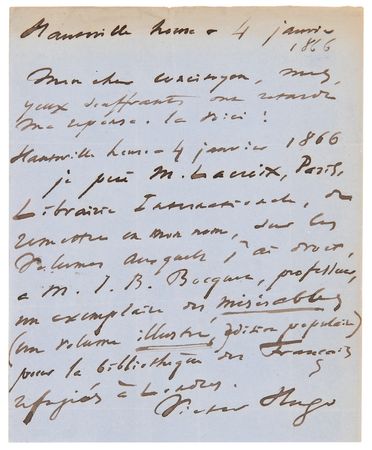 Hauteville house - 4 janvier
1866
Mon cher concitoyen, mes
yeux souffrants ont retardé
ma réponse. la voici :
Hauteville house - 4 janvier 1866
je prie M. Lacroix, Paris,
Librairie Internationale, de
remettre en mon nom, sur les
volumes auxquels j'ai droit,
à M. J. B. Bocquet, professeur,
un exemplaire des misérables
(un volume illustré, édition populaire)
pour la bibliothèque des Français
réfugiés à Londres.
Victor Hugo